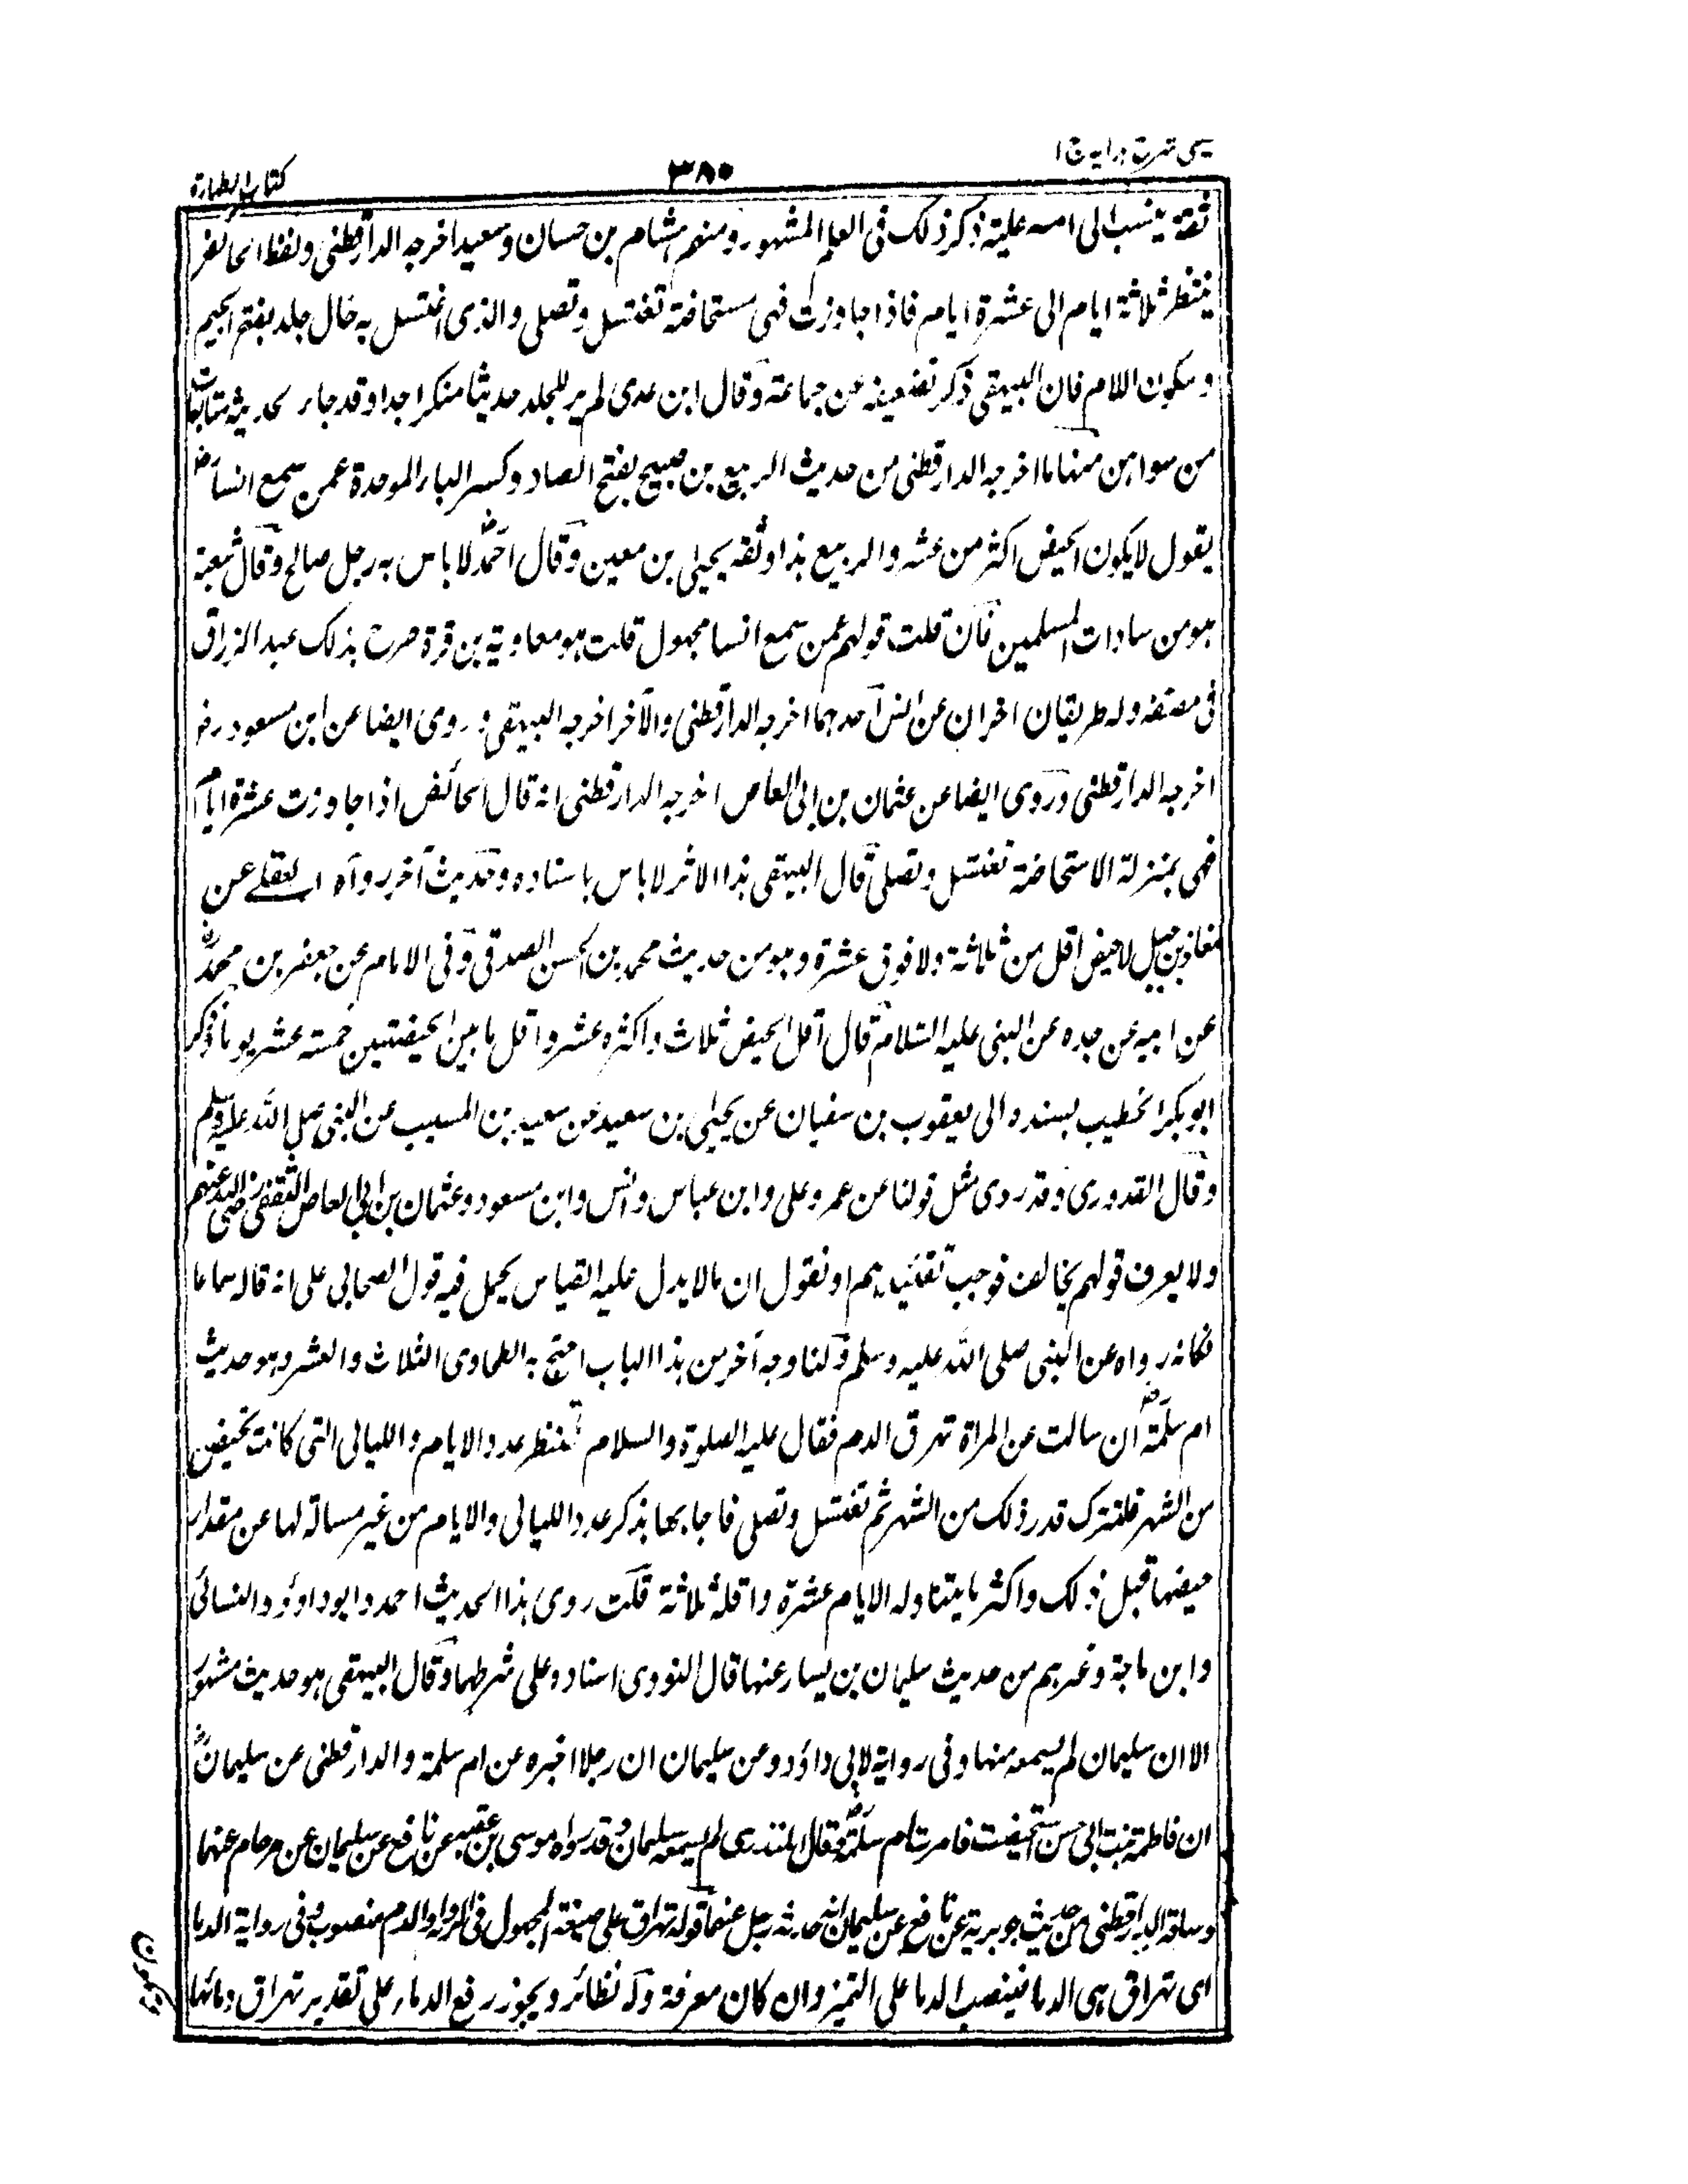 عینی شرح ہدایہ ج ۱
۳۸۰
کتاب الطهارة
ثقة ينسب الى امه علية ذكر ذلك فى العلم المشهور ومنهم هشام بن حسان وسعيد اخرجه الدارقطنى ولفظ الحائض
ينتظر ثلاثة ايام الى عشرة ايام فاذا جاوزت فهى مستحاضة تغتسل وتصلى والذى اغتسل به خال جلد بفتح الجيم
وسكون اللام فان البيهقى ذكر تضعيفه عن جماعة وقال ابن عدى لم ير للجلد حديثا منكرا جدا وقد جاء لحديثه متابعات
من سواهن منها ما اخرجه الدارقطنى من حديث الربيع بن صبيح بفتح الصاد وكسر الباء الموحدة عمن سمع انسا رض
يقول لا يكون الحيض اكثر من عشر والربيع هذا وثقه يحيى بن معين وقال احمد لا باس به رجل صالح وقال شعبة
هو من سادات المسلمين فان قلت قولهم عمن سمع انسا مجهول قلت هو معاوية بن قرة صرح بذلك عبد الرزاق
فى مصنفه وله طريقان اخران عن انس احدهما اخرجه الدارقطنى والآخر اخرجه البيهقى وروى ايضا عن ابن مسعود رض
اخرجه الدارقطنى وروى ايضا عن عثمان بن ابى العاص اخرجه الدارقطنى انه قال الحائض اذا جاوزت عشرة ايام
فهى بمنزلة الاستحاضة تغتسل وتصلى قال البيهقى هذا الاثر لا باس باسناده وحديث آخر رواه العقلے عن
معاذ بن جبل لا حيض اقل من ثلاثة ولا فوق عشرة وهو من حديث محمد بن الحسن الصدقى وفى الامام عن جعفر بن محمد
عن ابيه عن جده عن النبى عليه السلام قال اقل الحيض ثلاث واكثره عشر واقل ما بين الحيضتين خمسة عشر يوما ذكر
ابو بكر الخطيب بسنده الى يعقوب بن سفيان عن يحيى بن سعيد عن سعيد بن المسيب عن النبى صلى الله عليه وسلم
وقال القدورى وقد روى مثل قولنا عن عمر وعلى وابن عباس وانس وابن مسعود وعثمان بن ابى العاص الثقفى رضى الله عنهم
ولا يعرف قولهم بخالف فوجب تقليدهم او نقول ان ما لا يدل عليه القياس يحمل فيه قول الصحابى على انه قاله سماعا
فكانه رواه عن النبى صلى الله عليه وسلم ولنا وجه آخر من هذا الباب احتج به الطحاوى الثلاث والعشر وهو حديث
ام سلمة رض ان سالت عن المراة تهرق الدم فقال عليه الصلوة والسلام تنتظر عدد الايام والليالى التى كانت تحيض
من الشهر فلتترك قدر ذلك من الشهر ثم تغتسل وتصلى فاجابها بذكر عدد الليالى والايام من غير مسالة لها عن مقدار
حيضها قبل ذلك واكثر ما يتناوله الايام عشرة واقله ثلاثة قلت روى هذا الحديث احمد وابو داؤد والنسائى
وابن ماجة وغيرهم من حديث سليمان بن يسار عنها قال النووى اسناده على شرطهما وقال البيهقى هو حديث مشهور
الا ان سليمان لم يسمعه منها وفى رواية لابى داؤد وعن سليمان ان رجلا اخبره عن ام سلمة والدارقطنى عن سليمان
ان فاطمة بنت ابى حبيش استحيضت فامرت ام سلمة رض وقال المنذرى لم يسمعه سليمان وقد رواه موسى بن عقبة عن نافع عن سليمان عن مرجام عنها
وساقه الدارقطنى من حديث جويرية عن نافع عن سليمان انه حدثه رجل عنها قوله تهراق على صيغة المجهول فى الرواة والدم منصوب وفى رواية الدما
اى تهراق هى الدما فينصب الدما على التميز وان كان معرفة وله نظائر ويجوز رفع الدماء على تقدير تهراق دمائها
ويكون